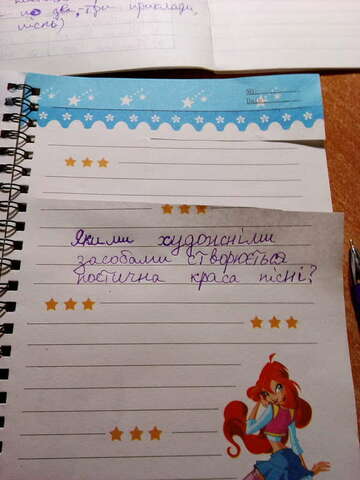 по два, три приклади,
пісні)
No:
Date:
Якими художніми
засобами створюється
поетична краса пісні?